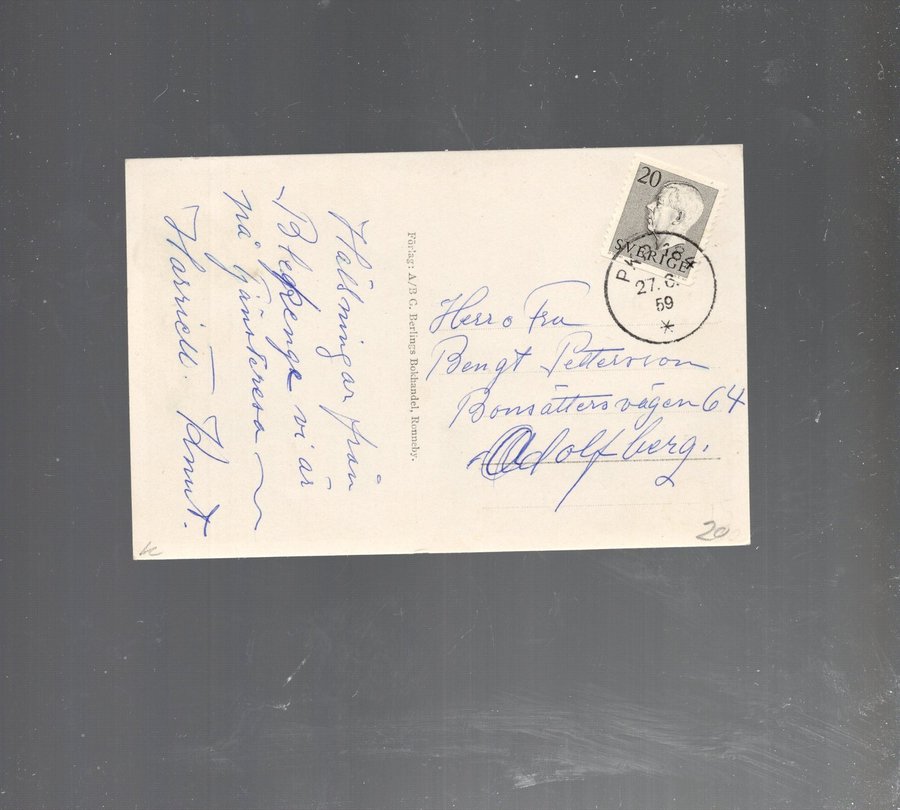 Hälsningar från
Blekenge vi är
på Tjänsteresa
Harriett. Knut.
Förlag: A/B C. Berlings Bokhandel, Ronneby.
20
SVERIGE
27. 6.
59
Herr o Fru
Bengt Pettersson
Bonsättersvägen 64
Adolfberg.
20